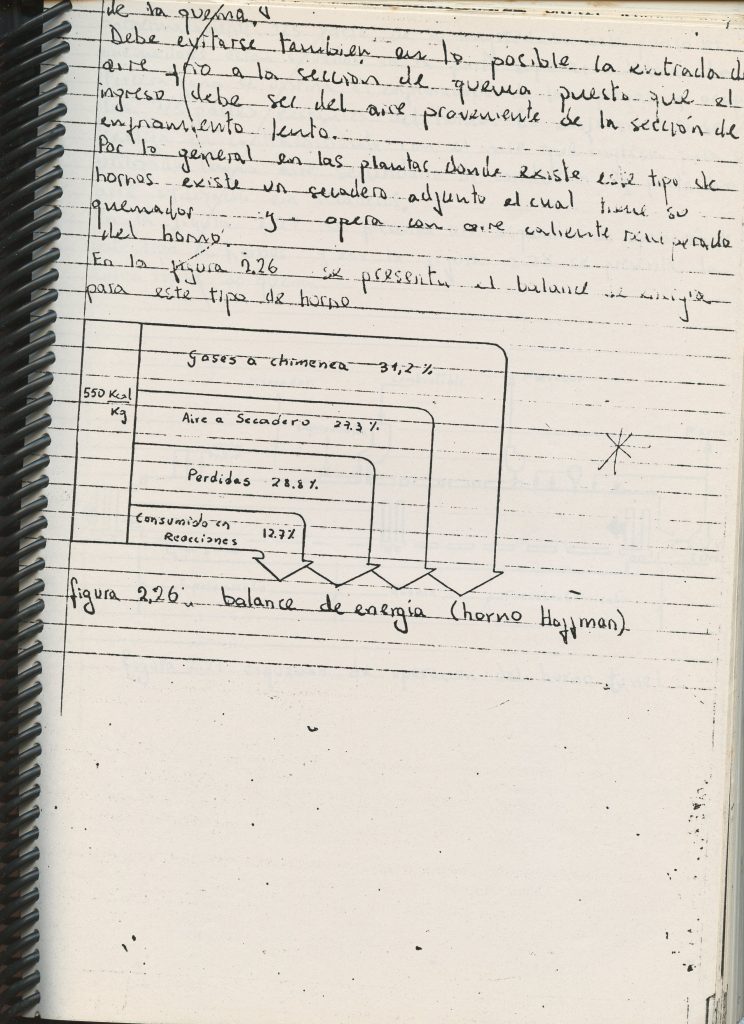 de la quema.
Debe evitarse también en lo posible la entrada de
aire frio a la sección de quema puesto que el
ingreso debe ser del aire proveniente de la sección de
enfriamiento lento.
Por lo general en las plantas donde existe este tipo de
hornos existe un secadero adjunto el cual tiene su
quemador y opera con aire caliente recuperado
del horno.
En la figura 2.26 se presenta el balance de energia
para este tipo de horno
Gases a chimenea 31,2 %
550 Kcal
Kg
Aire a Secadero 27.3 %
Perdidas 28.8 %
Consumido en
Reacciones 12.7 %
figura 2,26: balance de energía (horno Hoffman)